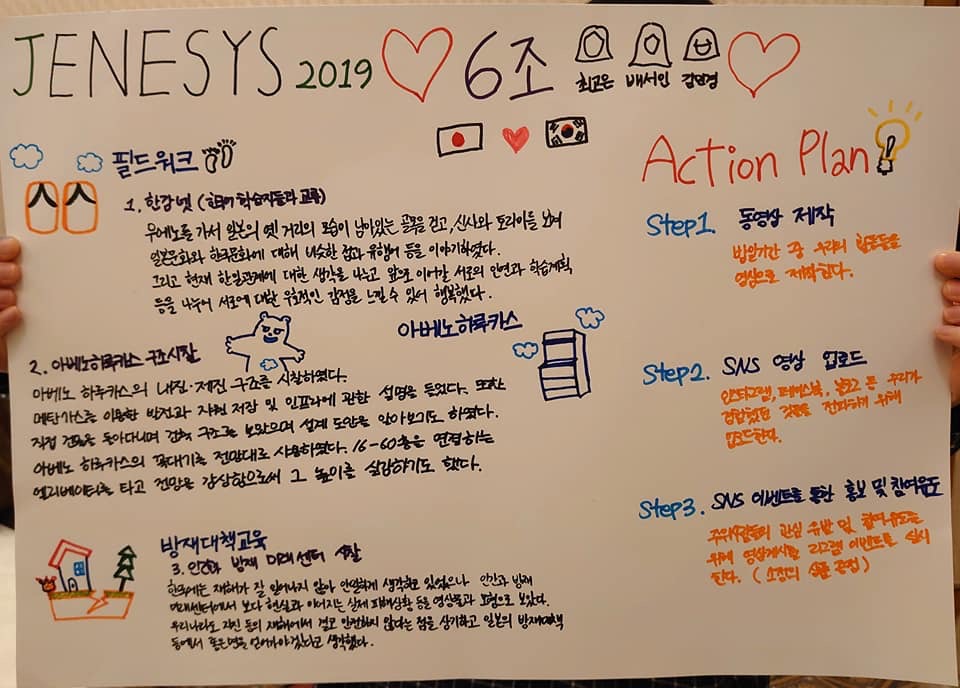 JENESYS 2019 6조
최고은 배서인 김민경
필드워크
1. 한강넷 (한국어 학습자들과 교류)
우에노를 가서 일본의 옛 거리의 모습이 남아있는 골목을 걷고, 신사와 토리이를 보며
일본문화와 한국문화에 대해 비슷한 점과 유행어 등을 이야기하였다.
그리고 현재 한일관계에 대한 생각을 나누고, 앞으로 이어갈 서로의 인연과 학습계획
등을 나누어 서로에 대한 우호적인 감정을 느낄 수 있어 행복했다.
아베노하루카스
2. 아베노하루카스 구조시찰
아베노 하루카스의 내진·제진 구조를 시찰하였다.
메탄가스를 이용한 발전과 자원 저장 및 인프라에 관한 설명을 들었다. 또한
직접 건물을 돌아다니며 건축 구조를 보았으며 설계 도안을 알아보기도 하였다.
아베노 하루카스의 꼭대기를 전망대로 사용하였다. 16-60층을 연결하는
엘리베이터를 타고 전망을 감상함으로써 그 높이를 실감하기도 했다.
방재대책교육
3. 인간과 방재 미래 센터 시찰
한국에는 재해가 잘 일어나지 않아 안일하게 생각하고 있었으나 인간과 방재
미래센터에서 보다 현실과 이어지는 실제 피해상황 등을 영상물과 모형으로 보았다.
우리나라도 지진 등의 재해에서 결코 안전하지 않다는 점을 상기하고 일본의 방재대책
등에서 좋은 면을 얻어가야겠다고 생각했다.
Action Plan
Step1. 동영상 제작
방일기간 중 우리의 활동들을
영상으로 제작한다.
Step2. SNS 영상 업로드
인스타그램, 페이스북, 블로그 등 우리가
경험했던 것들을 전파하기 위해
업로드한다.
Step3. SNS 이벤트를 통한 홍보 및 참여유도
주위사람들의 관심 유발 및 참여유도를
위해 영상게시글 리그램 이벤트를 실시
한다. (소정의 상품 증정)